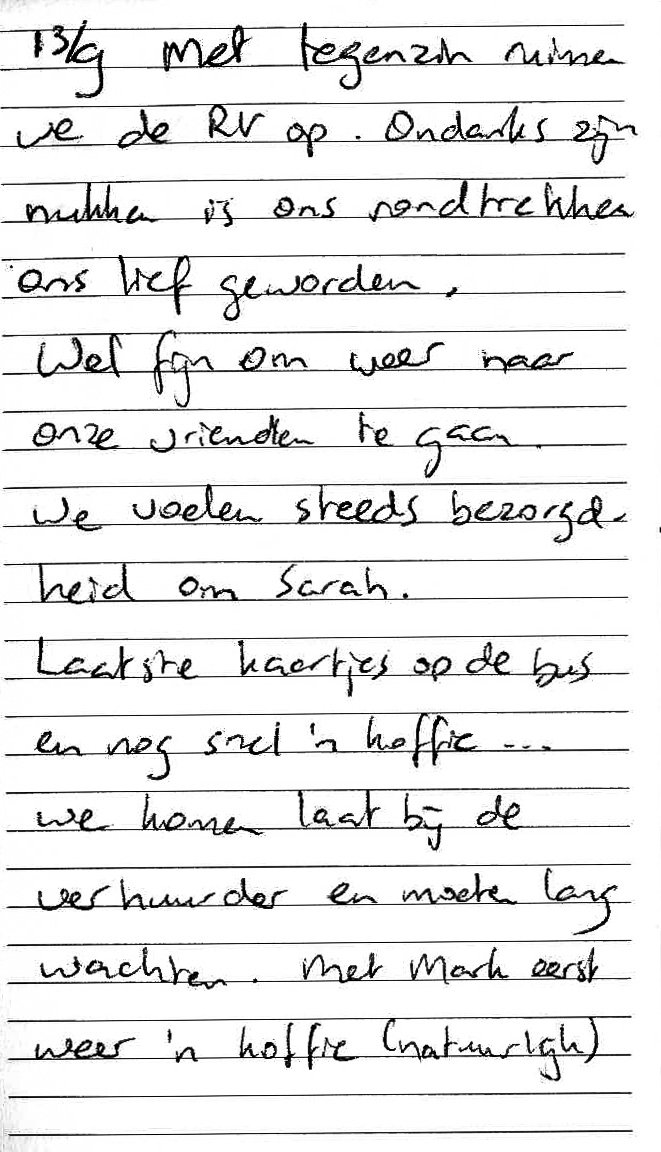 13/9 Met tegenzin ruimen
we de RV op. Ondanks zijn
nukken is ons rondtrekken
ons lief geworden.
Wel fijn om weer naar
onze vrienden te gaan.
We voelen steeds bezorgd-
heid om Sarah.
Laatste kaartjes op de bus
en nog snel 'n koffie ...
we komen laat bij de
verhuurder en moeten lang
wachten. Met Mark eerst
weer 'n koffie (natuurlijk)